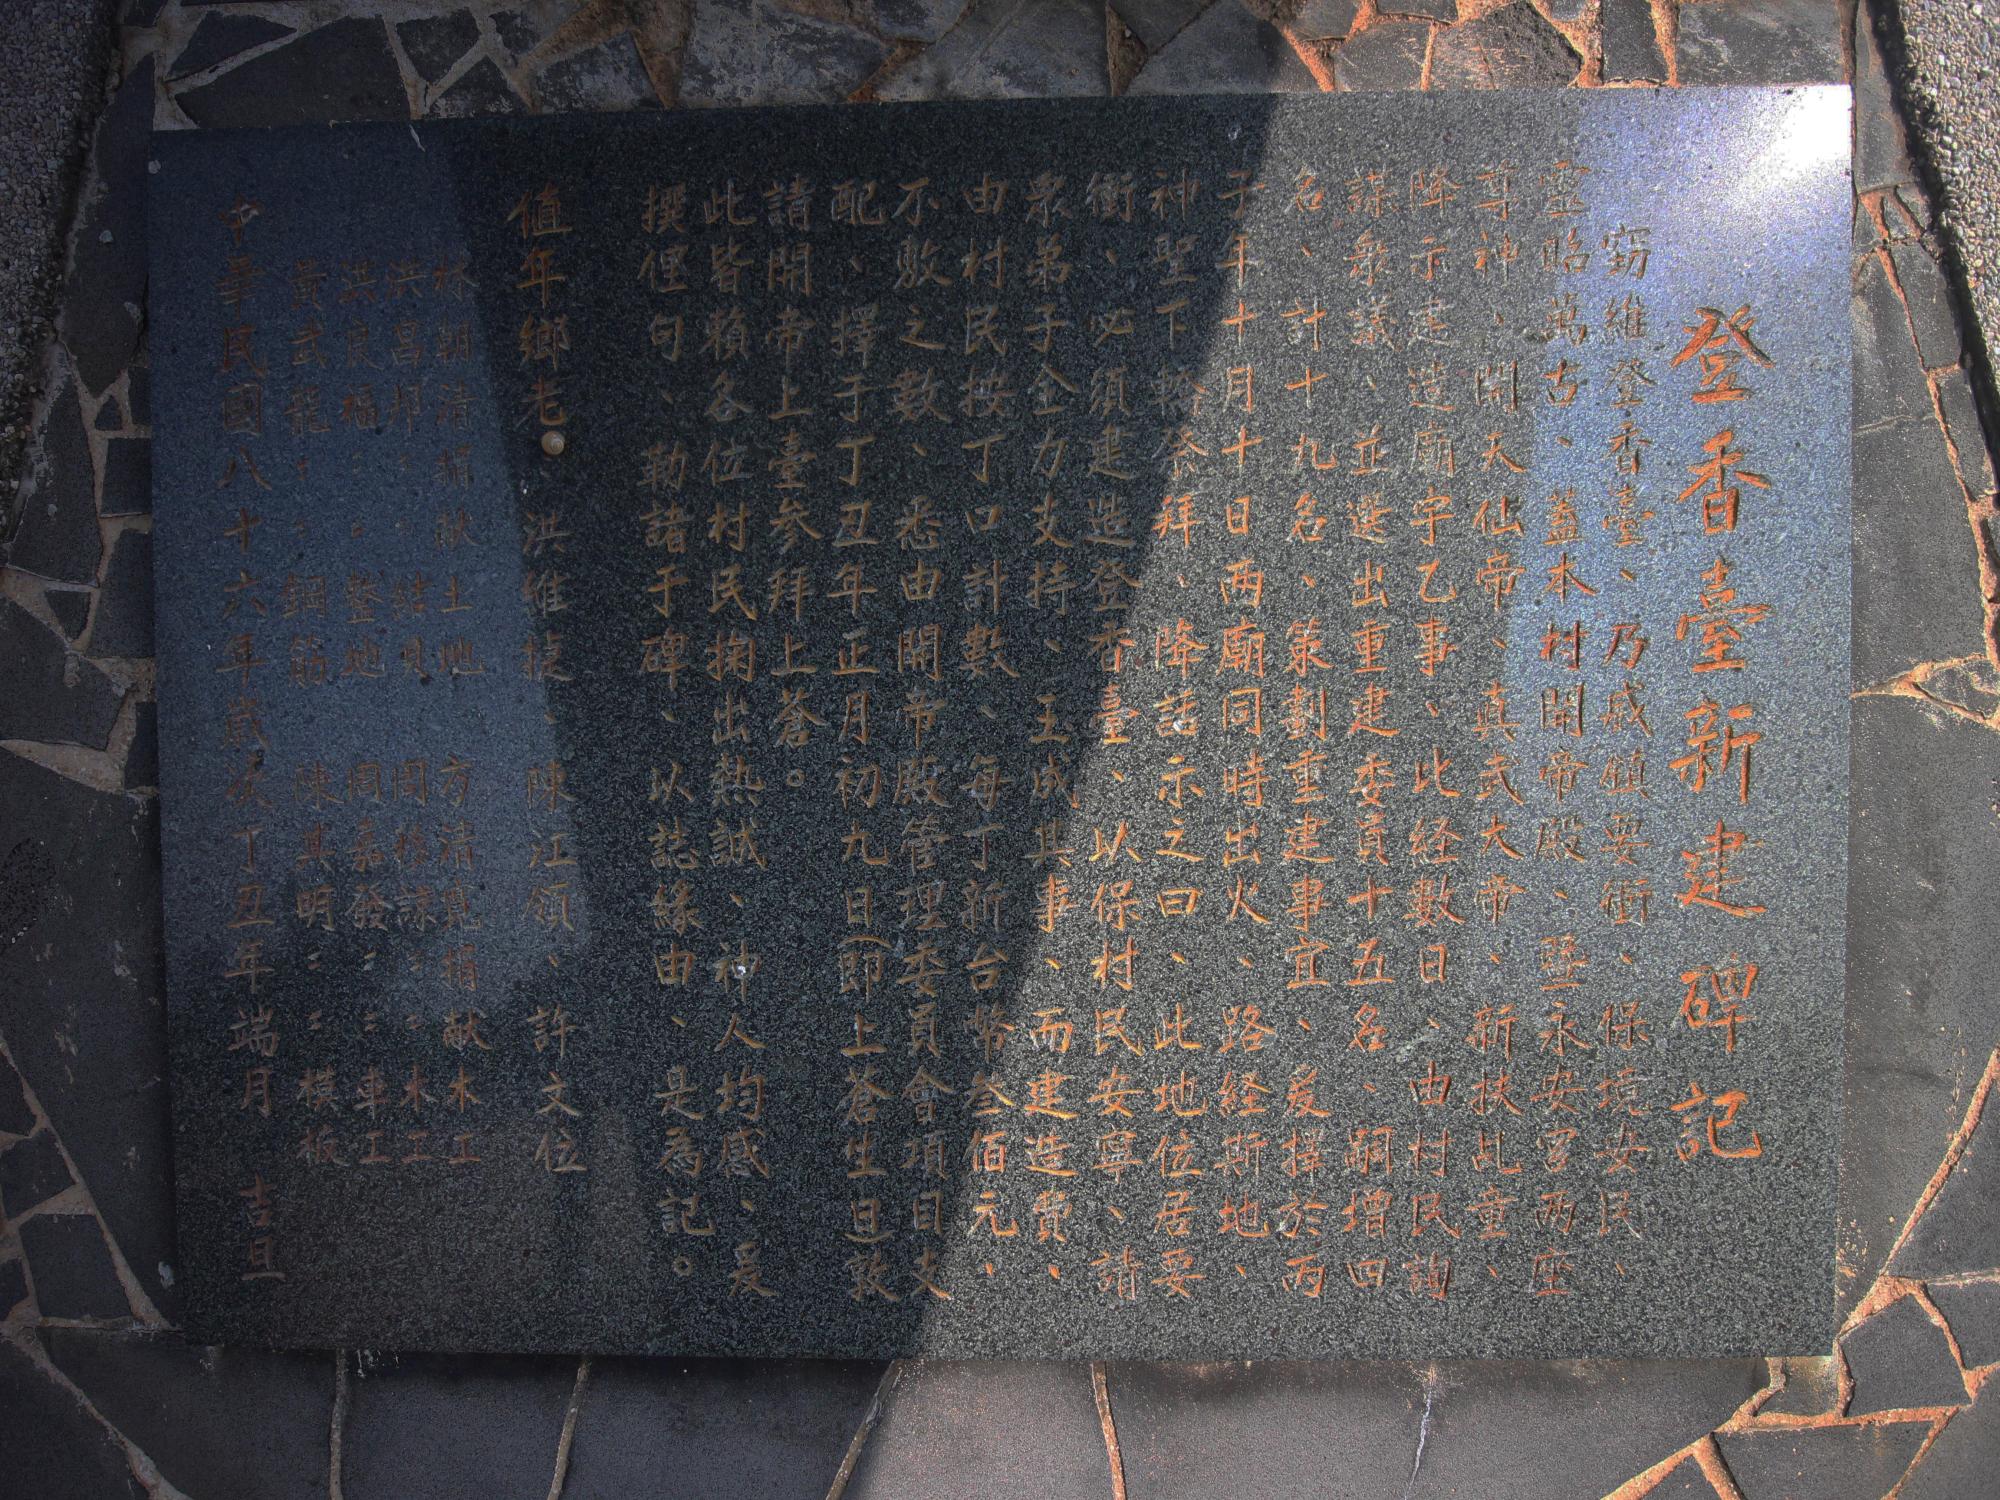 登香臺新建碑記
窃維登香臺、乃威鎮要衝、保境安民、
靈昭萬古、蓋本村開帝殿、暨永安宮兩座
尊神、開天仙帝、真武大帝、新扶乩童、
降示建造廟宇乙事、此経數日、由村民詢
謀衆議、並選出重建委員十五名、嗣增四
名、計十九名、策劃重建事宜、爰擇於丙
子年十月十日兩廟同時出火、路経斯地、
神聖下轎參拜、降話示之曰、此地位居要
衝、必須建造登香臺、以保村民安寧、請
衆弟子全力支持、玉成其事、而建造費、
由村民按丁口計數、每丁新台幣叁佰元、
不敷之數、悉由開帝殿管理委員會項目支
配、擇于丁丑年正月初九日(即上蒼生旦敦
請開帝上臺參拜上蒼。
此皆賴各位村民掬出熱誠、神人均感、爰
撰俚句、勒諸于碑、以誌緣由、是為記。
值年鄉老：洪維掟、陳江領、許文位
林朝清捐献土地 方清寬捐献木工
洪昌邦：結唄 周移諒：：木工
洪良福：：整地 周嘉發：：車工
黃武龍：：鋼筋 陳其明：：模板
中華民國八十六年歲次丁丑年端月 吉旦